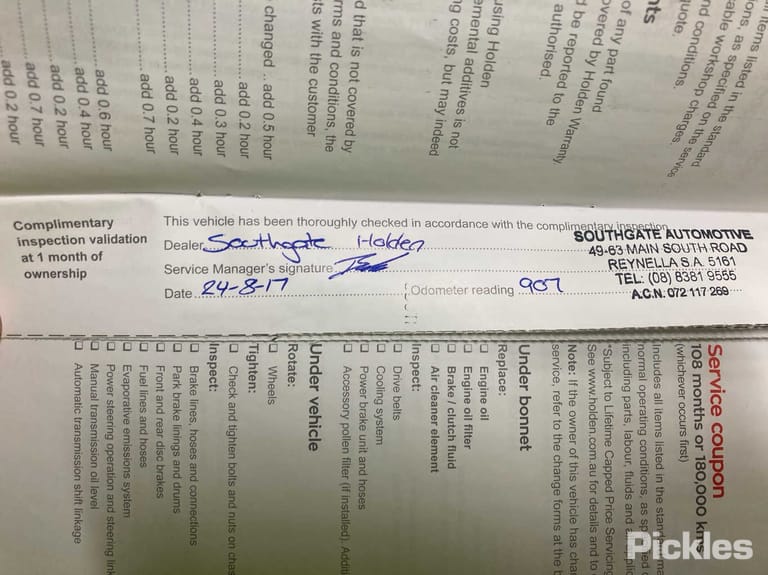 Complimentary
inspection validation
at 1 month of
ownership
This vehicle has been thoroughly checked in accordance with the complimentary inspection
Dealer Southgate Holden
Service Manager's signature
Date 24-8-17
Odometer reading 907
SOUTHGATE AUTOMOTIVE
49-63 MAIN SOUTH ROAD
REYNELLA S.A. 5161
TEL: (08) 8381 9555
A.C.N. 072 117 269
nts
of any part found
overed by Holden Warranty
d be reported to the
authorised.
all items listed in the
ions, as specified on the
able workshop standard
nd conditions charges. service
quote.
using Holden
emental additives is not
g costs, but may indeed
d that is not covered by
rms and conditions, the
ts with the customer
changed .. add 0.5 hour
add 0.2 hour
add 0.3 hour
add 0.4 hour
add 0.2 hour
add 0.7 hour
add 0.6 hour
add 0.4 hour
add 0.2 hour
add 0.7 hour
add 0.2 hour
Service coupon
108 months or 180,000 km
(whichever occurs first)
Includes all items listed in the standard
normal operating conditions, as
including parts, labour, fluids and
*Subject to Lifetime Capped Price Servicing
See www.holden.com.au for details and to
Note: If the owner of this vehicle has
service, refer to the change forms at the
Under bonnet
Replace:
Engine oil
Engine oil filter
Brake / clutch fluid
Air cleaner element
Inspect:
Drive belts
Cooling system
Power brake unit and hoses
Accessory pollen filter (if installed).
Under vehicle
Rotate:
Wheels
Tighten:
Check and tighten bolts and nuts on chas
Inspect:
Brake lines, hoses and connections
Park brake linings and drums
Front and rear disc brakes
Fuel lines and hoses
Evaporative emissions system
Power steering operation and steering
Manual transmission oil level
Automatic transmission shift linkage
Pickles